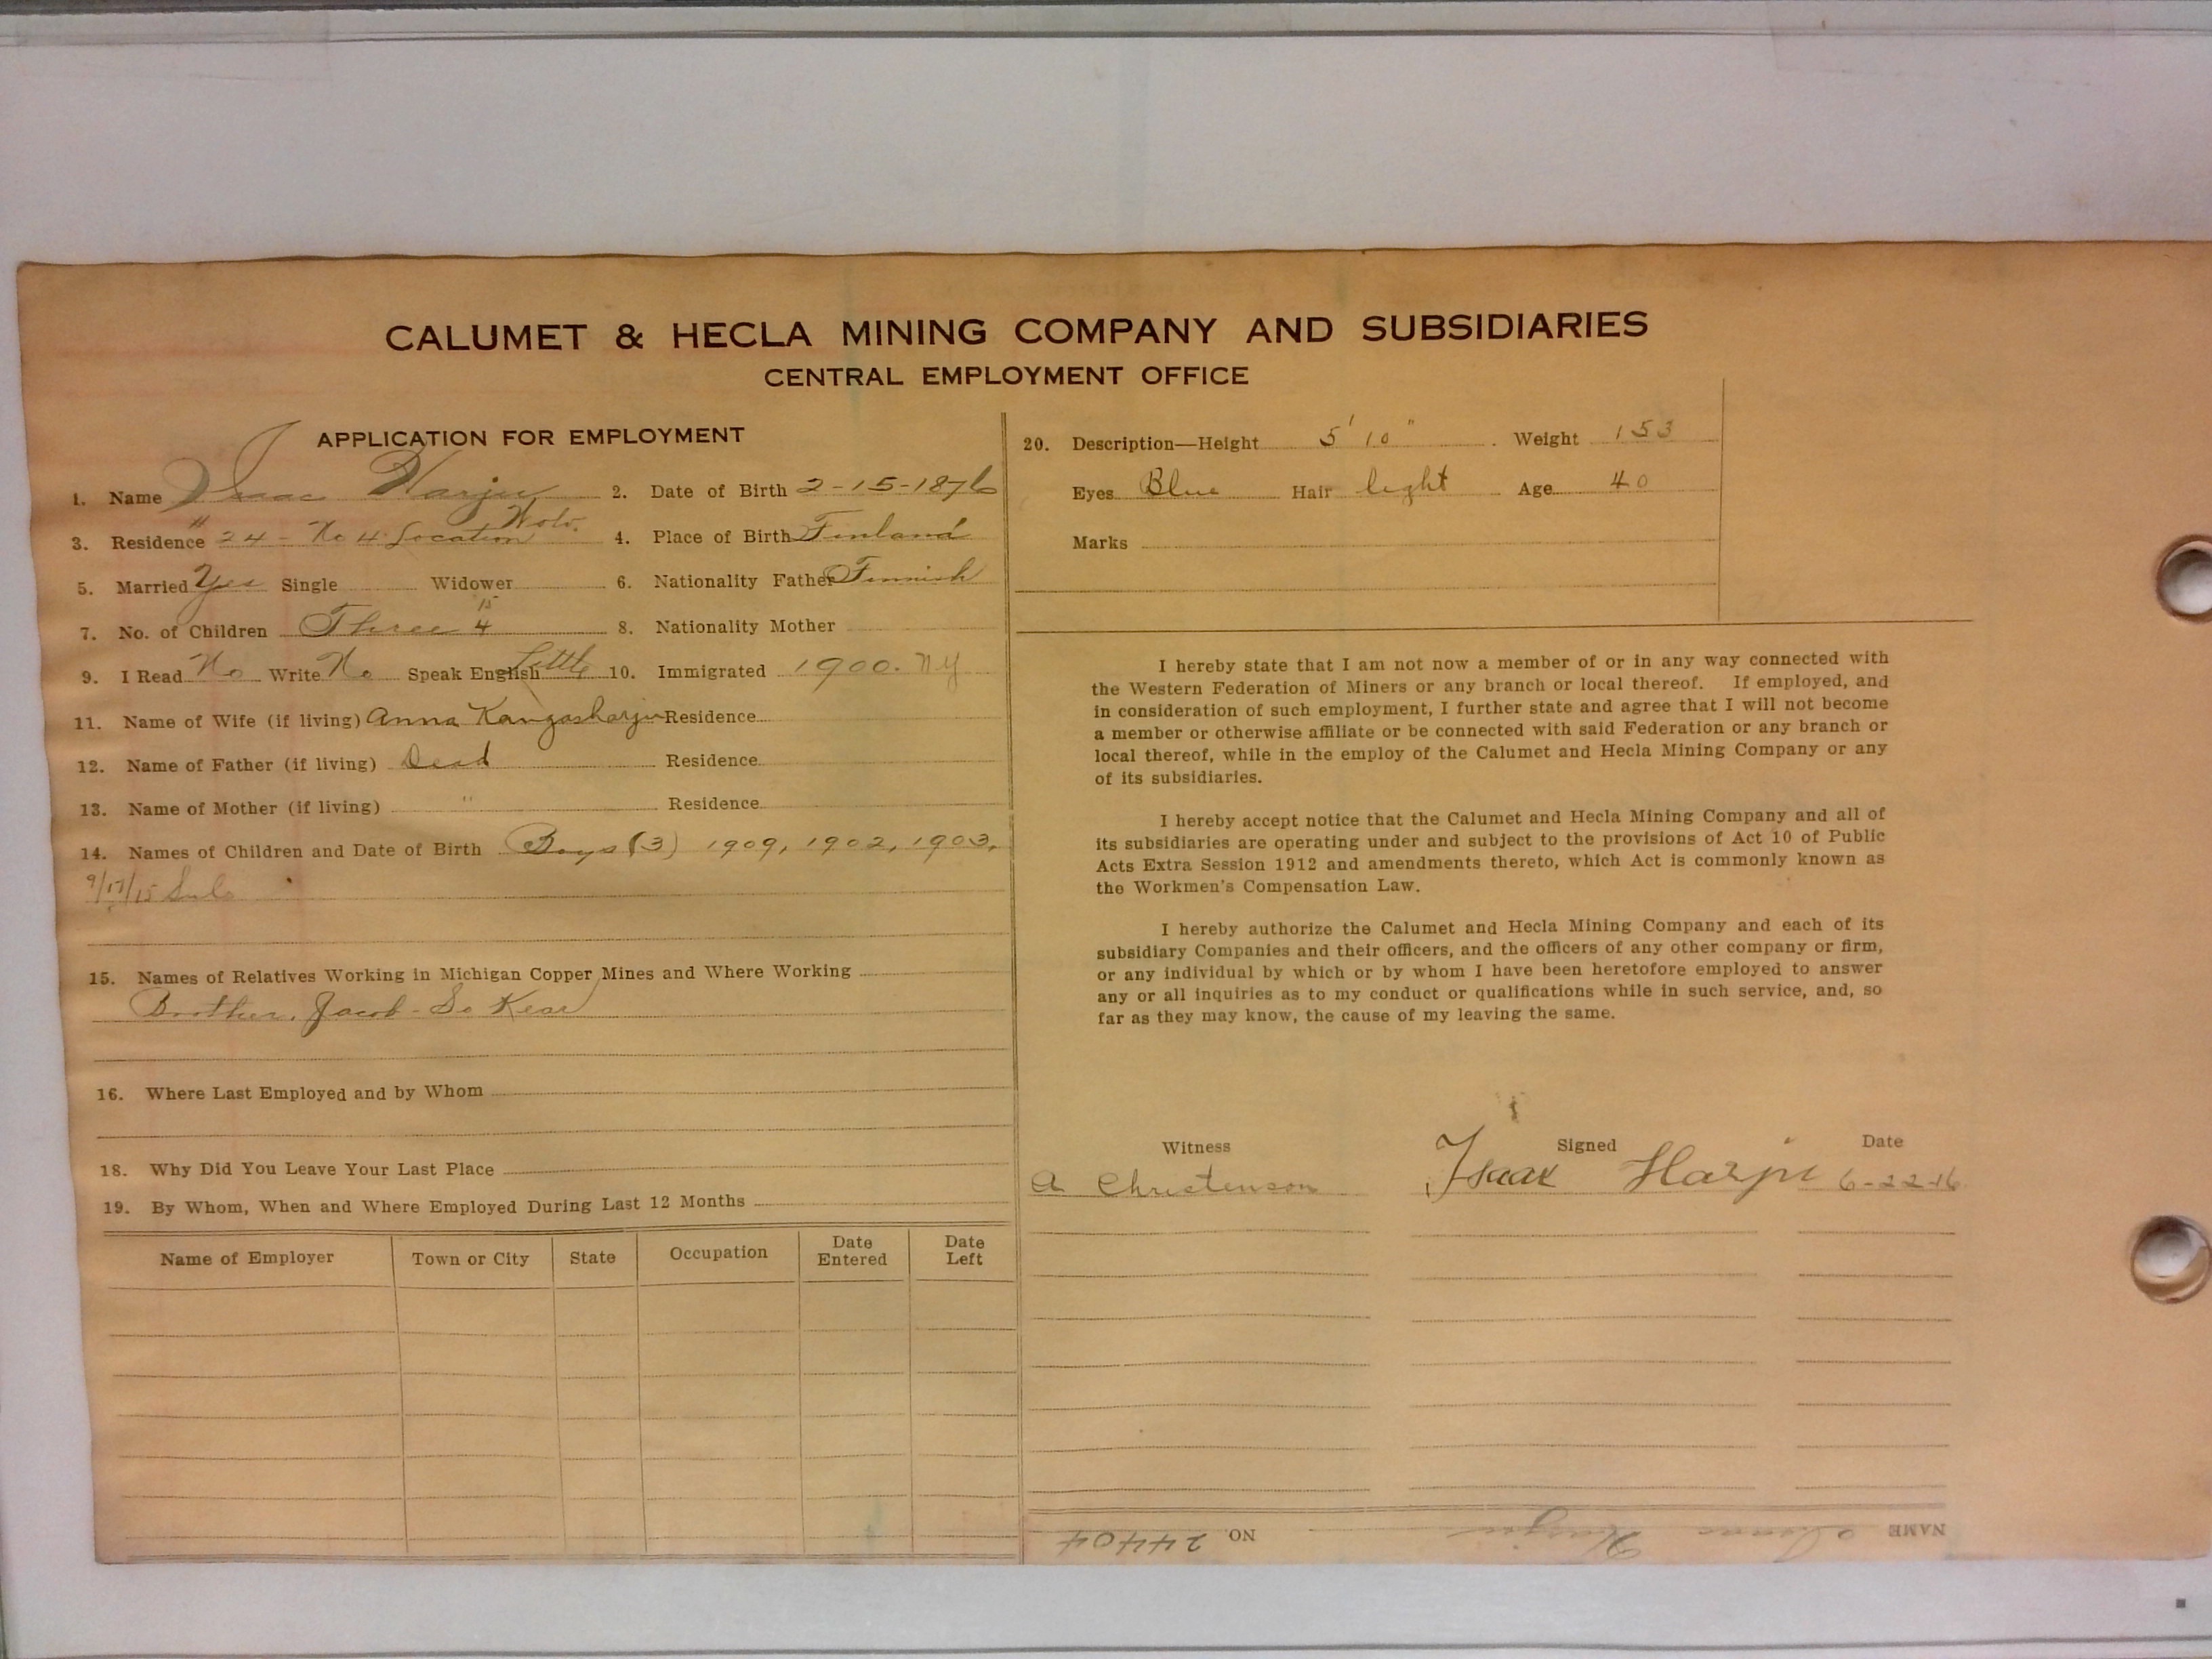 CALUMET & HECLA MINING COMPANY AND SUBSIDIARIES
CENTRAL EMPLOYMENT OFFICE
APPLICATION FOR EMPLOYMENT
1. Name Isaac Harju 2. Date of Birth 2-15-1876
3. Residence #24 - No 4 Location Wolv. 4. Place of Birth Finland
5. Married Yes Single Widower 6. Nationality Father Finnish
7. No. of Children Three 4 15 8. Nationality Mother
9. I Read No Write No Speak English Little 10. Immigrated 1900. NY
11. Name of Wife (if living) Anna Kangasharju Residence
12. Name of Father (if living) Dead Residence
13. Name of Mother (if living) " Residence
14. Names of Children and Date of Birth Boys (3) 1909, 1902, 1903.
9/17/15
15. Names of Relatives Working in Michigan Copper Mines and Where Working
Brother, Jacob - So Kear
16. Where Last Employed and by Whom
18. Why Did You Leave Your Last Place
19. By Whom, When and Where Employed During Last 12 Months
Name of Employer Town or City State Occupation Date Entered Date Left
20. Description—Height 5' 10" Weight 153
Eyes Blue Hair light Age 40
Marks
I hereby state that I am not now a member of or in any way connected with
the Western Federation of Miners or any branch or local thereof. If employed, and
in consideration of such employment, I further state and agree that I will not become
a member or otherwise affiliate or be connected with said Federation or any branch or
local thereof, while in the employ of the Calumet and Hecla Mining Company or any
of its subsidiaries.
I hereby accept notice that the Calumet and Hecla Mining Company and all of
its subsidiaries are operating under and subject to the provisions of Act 10 of Public
Acts Extra Session 1912 and amendments thereto, which Act is commonly known as
the Workmen's Compensation Law.
I hereby authorize the Calumet and Hecla Mining Company and each of its
subsidiary Companies and their officers, and the officers of any other company or firm,
or any individual by which or by whom I have been heretofore employed to answer
any or all inquiries as to my conduct or qualifications while in such service, and, so
far as they may know, the cause of my leaving the same.
Witness Signed Date
A Christenson Isaak Harju 6-22-16
NAME Isaac Harju NO. 24404